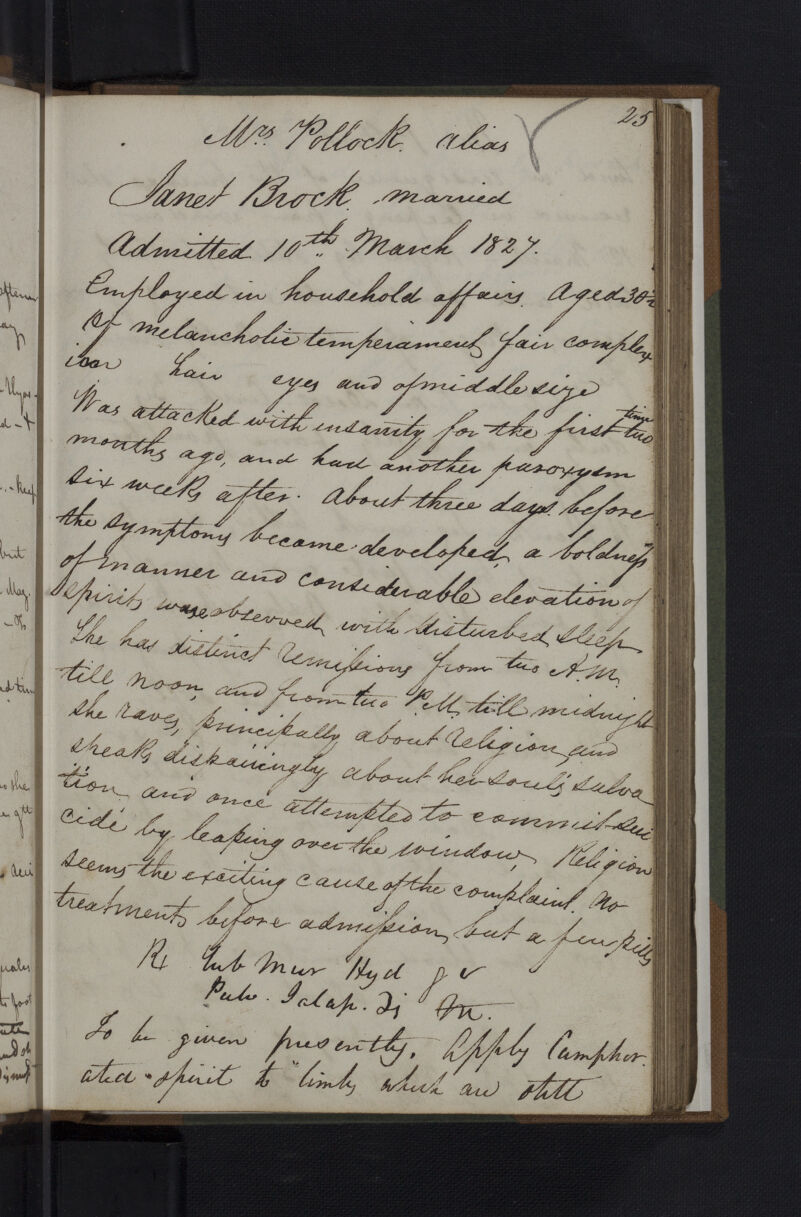 25
Mrs. Pollock. alias
Janet Brock. married
Admitted 10th March 1827.
Employed in household affairs. Aged 38
Of melancholic temperament, fair complex
ion hair eyes and of middle size
Was attacked with insanity for the first time two
months ago, and had another paroxysm
six weeks after. About three days before
the symptoms became developed, a boldness
of manner and considerable elevation of
spirits were observed, with disturbed sleep
She has distinct remissions from two A.M.
till noon, and from two P.M. till midnight
she raves, principally about religion, and
speaks dispairingly about her soul's salva
tion and once attempted to commit sui
cide by leaping over the window, Religion
seems the exciting cause of the complaint. No
treatment, before admission, but a few pills
Rx Sub Mur Hyd g v
Pulv. Jalap. Ʒi M.
To be given presently. Apply Camphor.
ated spirit to limbs which are still